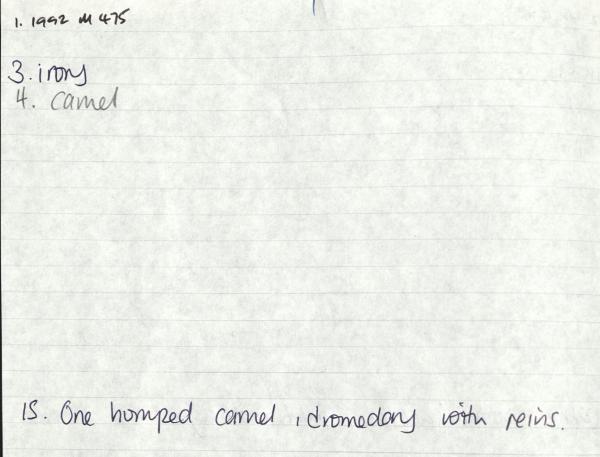 1. 1992 M 475
3. ivory
4. camel
15. One humped camel, dromedary with reins.